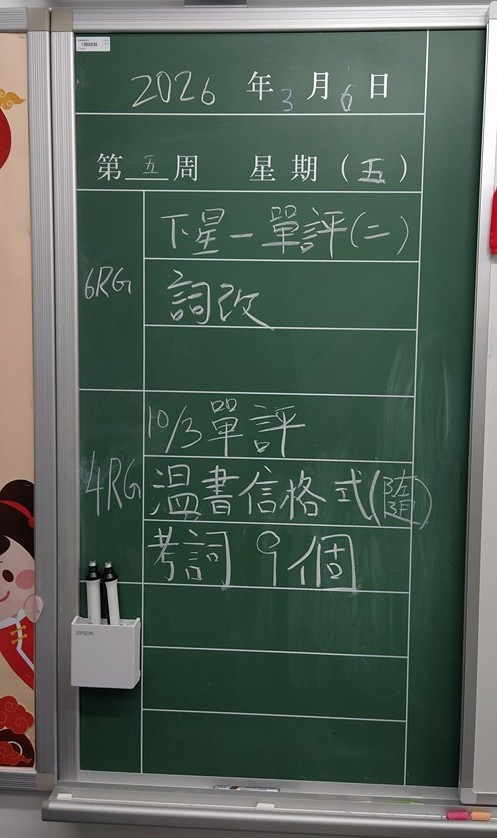 2026 年 3 月 6 日
第 五 周 星期 (五)
6RG
下星一單評(二)
詞改
4RG
10/3 單評
溫書信格式(
考詞 9個
EPSON